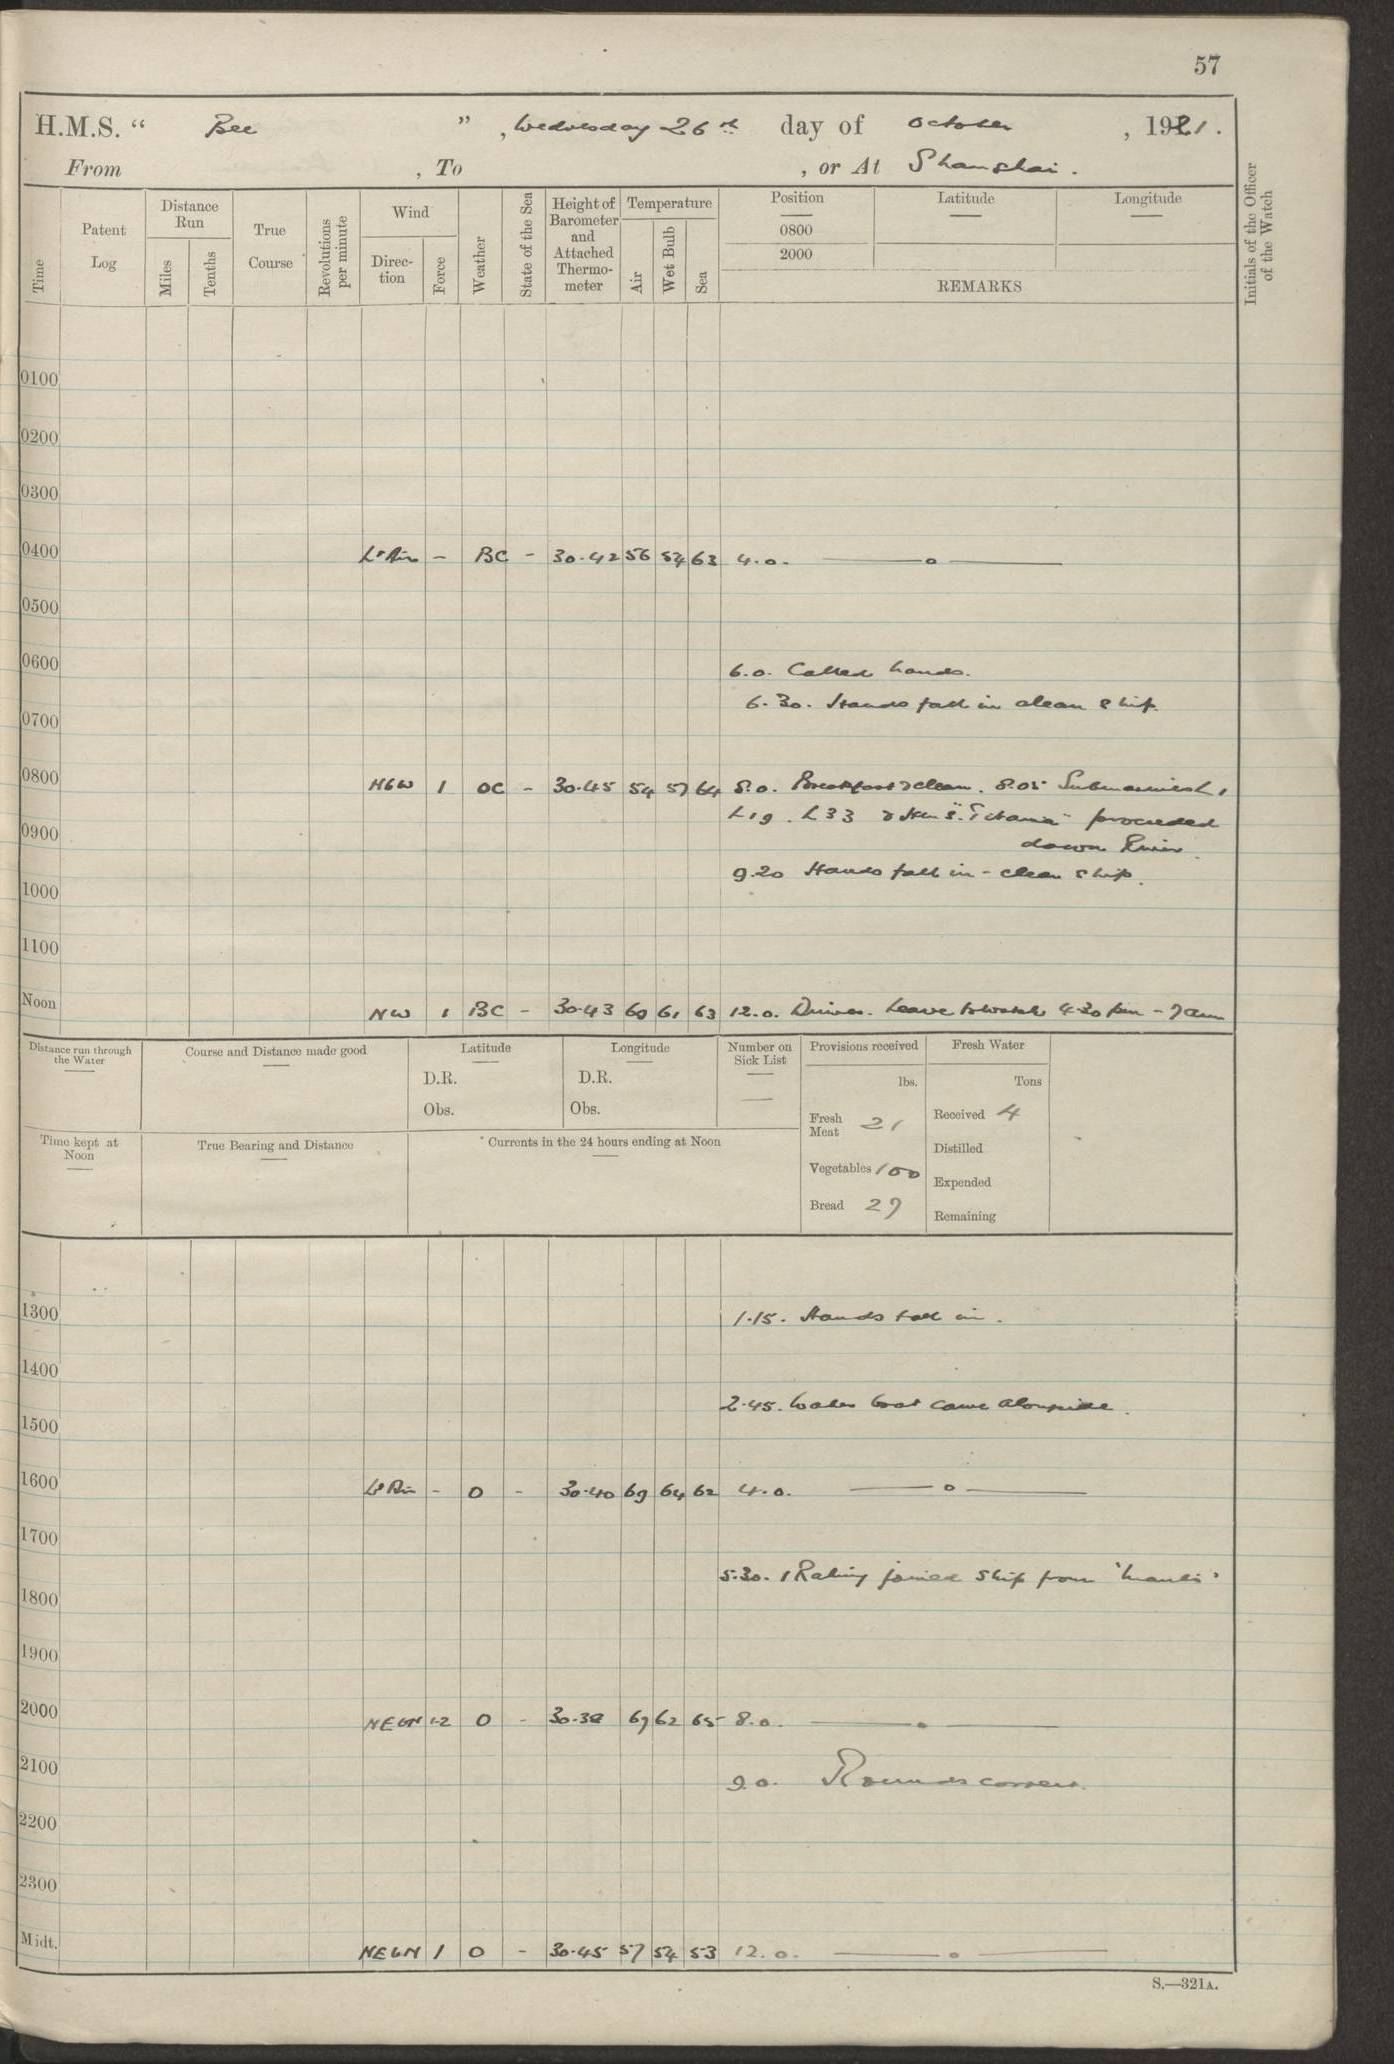 57
H.M.S. " Bee " , Wednesday 26th day of October , 1921.
From , To , or At Shanghai.
Time
Patent Log
Distance Run
Miles
Tenths
True Course
Revolutions per minute
Wind
Direction
Force
Weather
State of the Sea
Height of Barometer and Attached Thermometer
Temperature
Air
Wet Bulb
Sea
Position
0800
2000
Latitude
Longitude
REMARKS
Initials of the Officer of the Watch
0100
0200
0300
0400 Lt Air - BC - 30.42 56 54 63 4.0. —o—
0500
0600
6.0. Called hands.
6.30. Hands fall in clean ship.
0700
0800 NbW 1 OC - 30.45 54 57 64 8.0. Breakfast & clean. 8.05 Submarines L1
L19. L33 & H.M.S. "Titania" proceeded
0900
down River.
9.20 Hands fall in - clean ship.
1000
1100
Noon NW 1 BC - 30.43 69 61 63 12.0. Dinner. Leave to watch 4.30 pm - 7am
Distance run through the Water
Course and Distance made good
Latitude
D.R.
Obs.
Longitude
D.R.
Obs.
Number on Sick List
—
Provisions received
lbs.
Fresh Meat 21
Vegetables 100
Bread 27
Fresh Water
Tons
Received 4
Distilled
Expended
Remaining
Time kept at Noon
True Bearing and Distance
Currents in the 24 hours ending at Noon
1300
1.15. Hands fall in.
1400
2.45. Water boat came alongside.
1500
1600 Lt Air - O - 30.40 69 64 62 4.0. —o—
1700
5.30. 1 Rating joined ship from 'Mantis'
1800
1900
2000 NEbN 1-2 O - 30.38 67 62 65 8.0. —o—
2100
9.0. Rounds correct.
2200
2300
Midt. NEbN 1 O - 30.45 57 54 53 12.0. —o—
S.—321A.